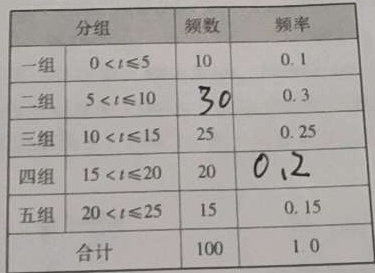 分组 频数 频率
一组 0<t≤5 10 0.1
二组 5<t≤10 30 0.3
三组 10<t≤15 25 0.25
四组 15<t≤20 20 0.2
五组 20<t≤25 15 0.15
合计 100 1.0